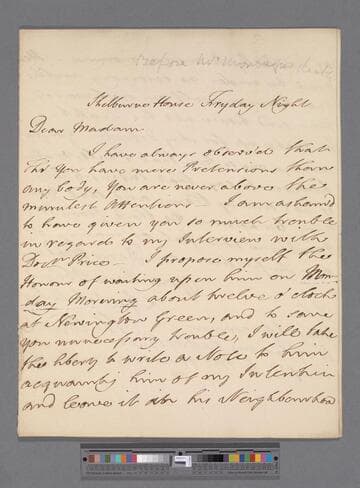 Before Mr Montagu's death
Shelburne House Fryday Night
Dear Madam
I have always observed that
tho' you have more Pretensions than
any body, you are never above the
minutest Attentions I am asham'd
to have given you so much trouble
in regard to my Interview with
Doctr Price — I propose myself the
Honour of waiting upon him on Mon-
day Morning about twelve o'clock
at Newington Green, and to save
you unnecessary trouble, I will take
the liberty to write a Note to him
acquainting him of my Intention
and leave it in his Neighbourhood